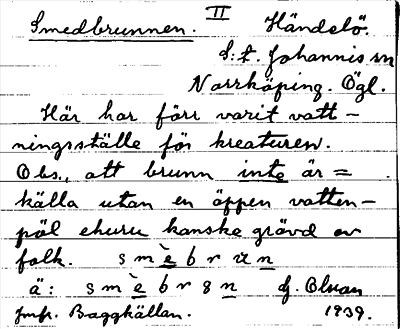 Smedbrunnen. II Händelö.
S:t. Johannis sn
Norrköping. Ögl.
Här har förr varit vatt-
ningsställe för kreaturen.
Obs., att brunn inte är =
källa utan en öppen vatten-
pöl ehuru kanske grävd av
folk. smèbrun
ä: smèbrsn
Jmfr. Baggkällan. 1939.